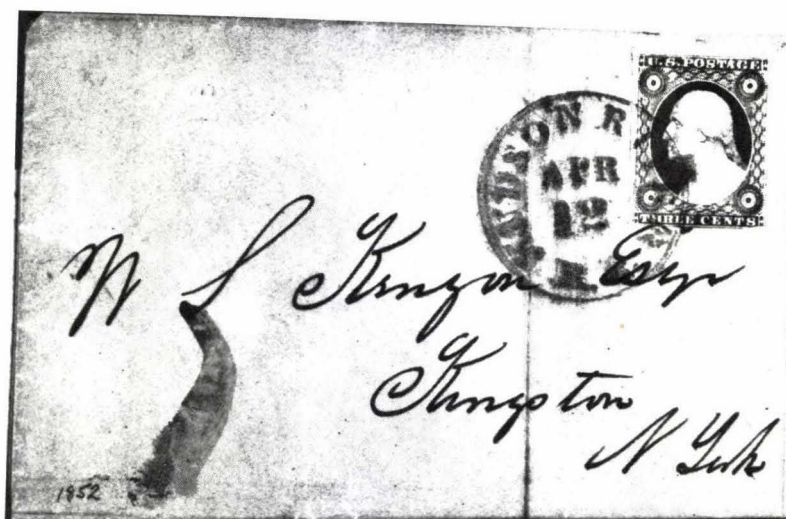 U.S. POSTAGE
THREE CENTS
HUDSON R
APR
12
R.R.
W S Kenyon Esqr
Kingston
N York
1852